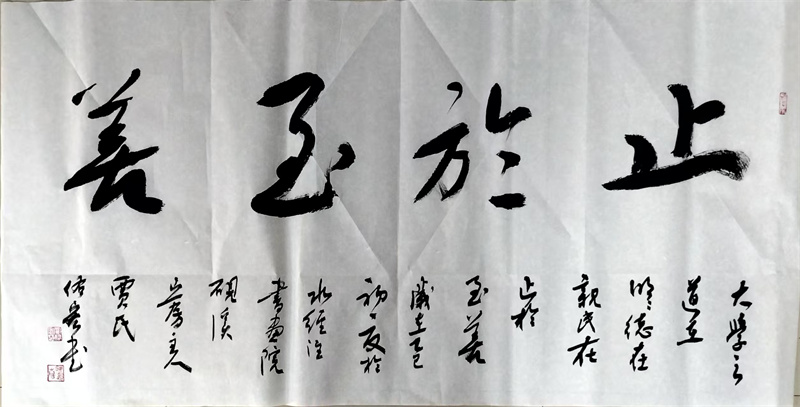 止於至善
大學之
道在
明德在
親民在
止於
至善
歲在乙巳
初夏於
水經注
書畫院
硯溪
賈氏